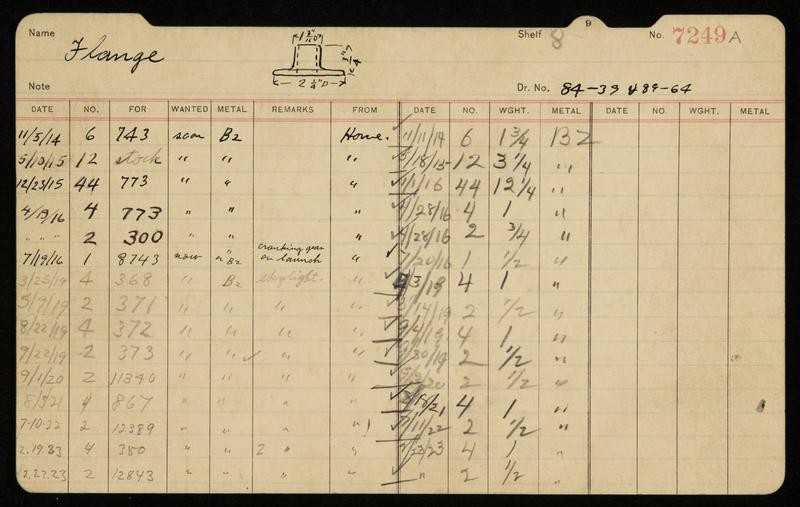 Name Flange Shelf 8 9 No. 7249 A
1 3/16"D
3/4"
2 1/4"D
Note Dr. No. 84-39 & 89-64
DATE NO. FOR WANTED METAL REMARKS FROM DATE NO. WGHT. METAL DATE NO. WGHT. METAL
11/5/14 6 743 soon Bz Home. 11/11/14 6 1 3/4 BZ
5/10/15 12 stock " " " 5/18/15 12 3 1/4 "
12/23/15 44 773 " " " 1/1/16 44 12 1/4 "
4/19/16 4 773 " " " 4/28/16 4 1 "
" " " 2 300 " " " 4/28/16 2 3/4 "
7/19/16 1 8743 now " Bz cranking gear on launch " 7/20/16 1 1/2 "
3/25/19 4 368 " Bz skylight. " 4/3/19 4 1 "
5/9/19 2 371 " " " " 5/14/19 2 1/2 "
8/22/19 4 372 " " " " 9/4/19 4 1 "
9/22/19 2 373 " " ✓ " " 9/30/19 2 1/2 "
9/1/20 2 11340 " " " " 9/2/20 2 1/2 "
8/3/21 4 867 " " " " /18/21 4 1 "
7-10-22 2 12389 " " " " 7/11/22 2 1/2 "
2.19.23 4 380 " " 2 " " /23/23 4 1 "
2.22.23 2 12843 " " " " " 2 1/2 "